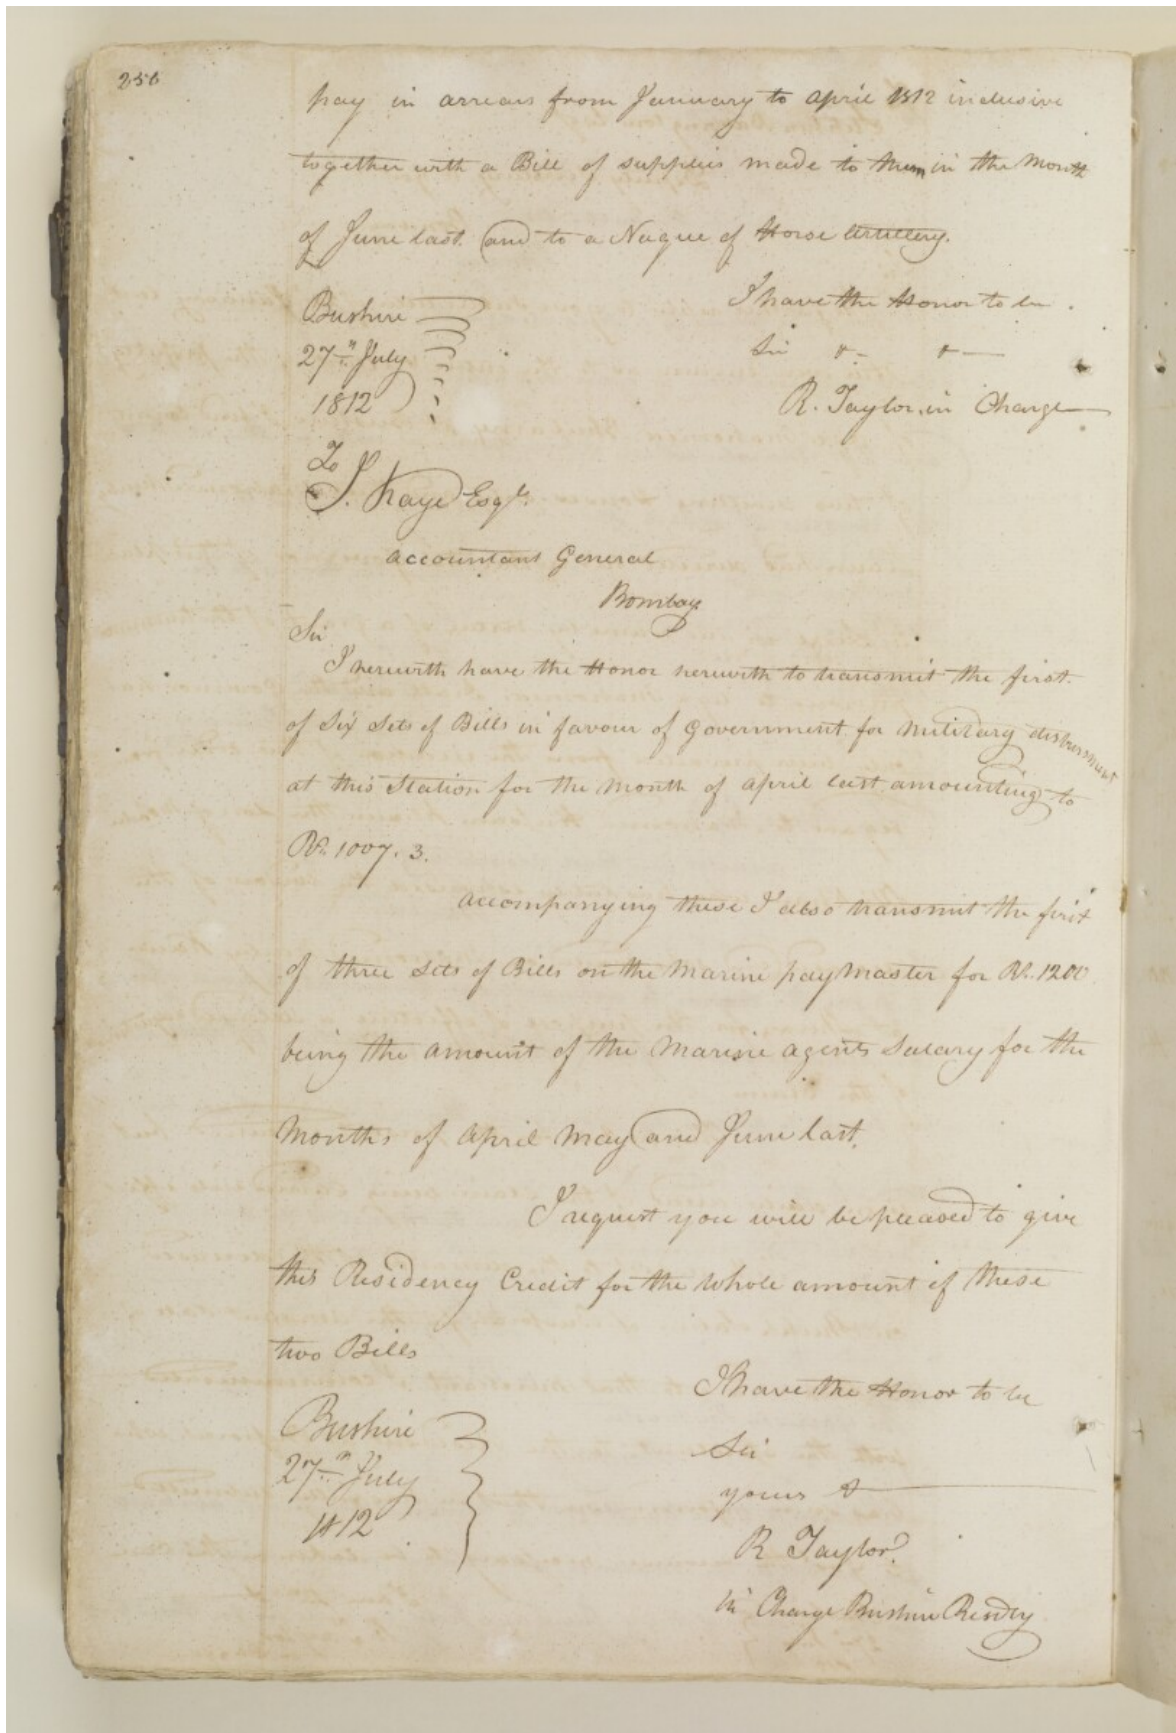 256
pay in arrears from January to April 1812 inclusive
together with a Bill of supplies made to them in the Month
of June last and to a Naque of Horse Artillery.
I have the Honor to be
Bushire
Sir &- &-
27th July
1812
R. Taylor in Charge
To
J. Kaye Esqr.
Accountant General
Bombay
Sir
I herewith have the Honor herewith to transmit the first
of Six Sets of Bills in favour of Government for Military disbursment
at this Station for the Month of April last amounting to
Rs. 1007. 3.
Accompanying these I also transmit the first
of three sets of Bills on the Marine pay Master for Rs. 1200
being the amount of the Marine Agents Salary for the
Months of April May and June last.
I request you will be pleased to give
this Residency Credit for the whole amount of these
two Bills
I have the Honor to be
Bushire
Sir
27th July
yours &
1812
R Taylor
in Charge Bushire Resdy